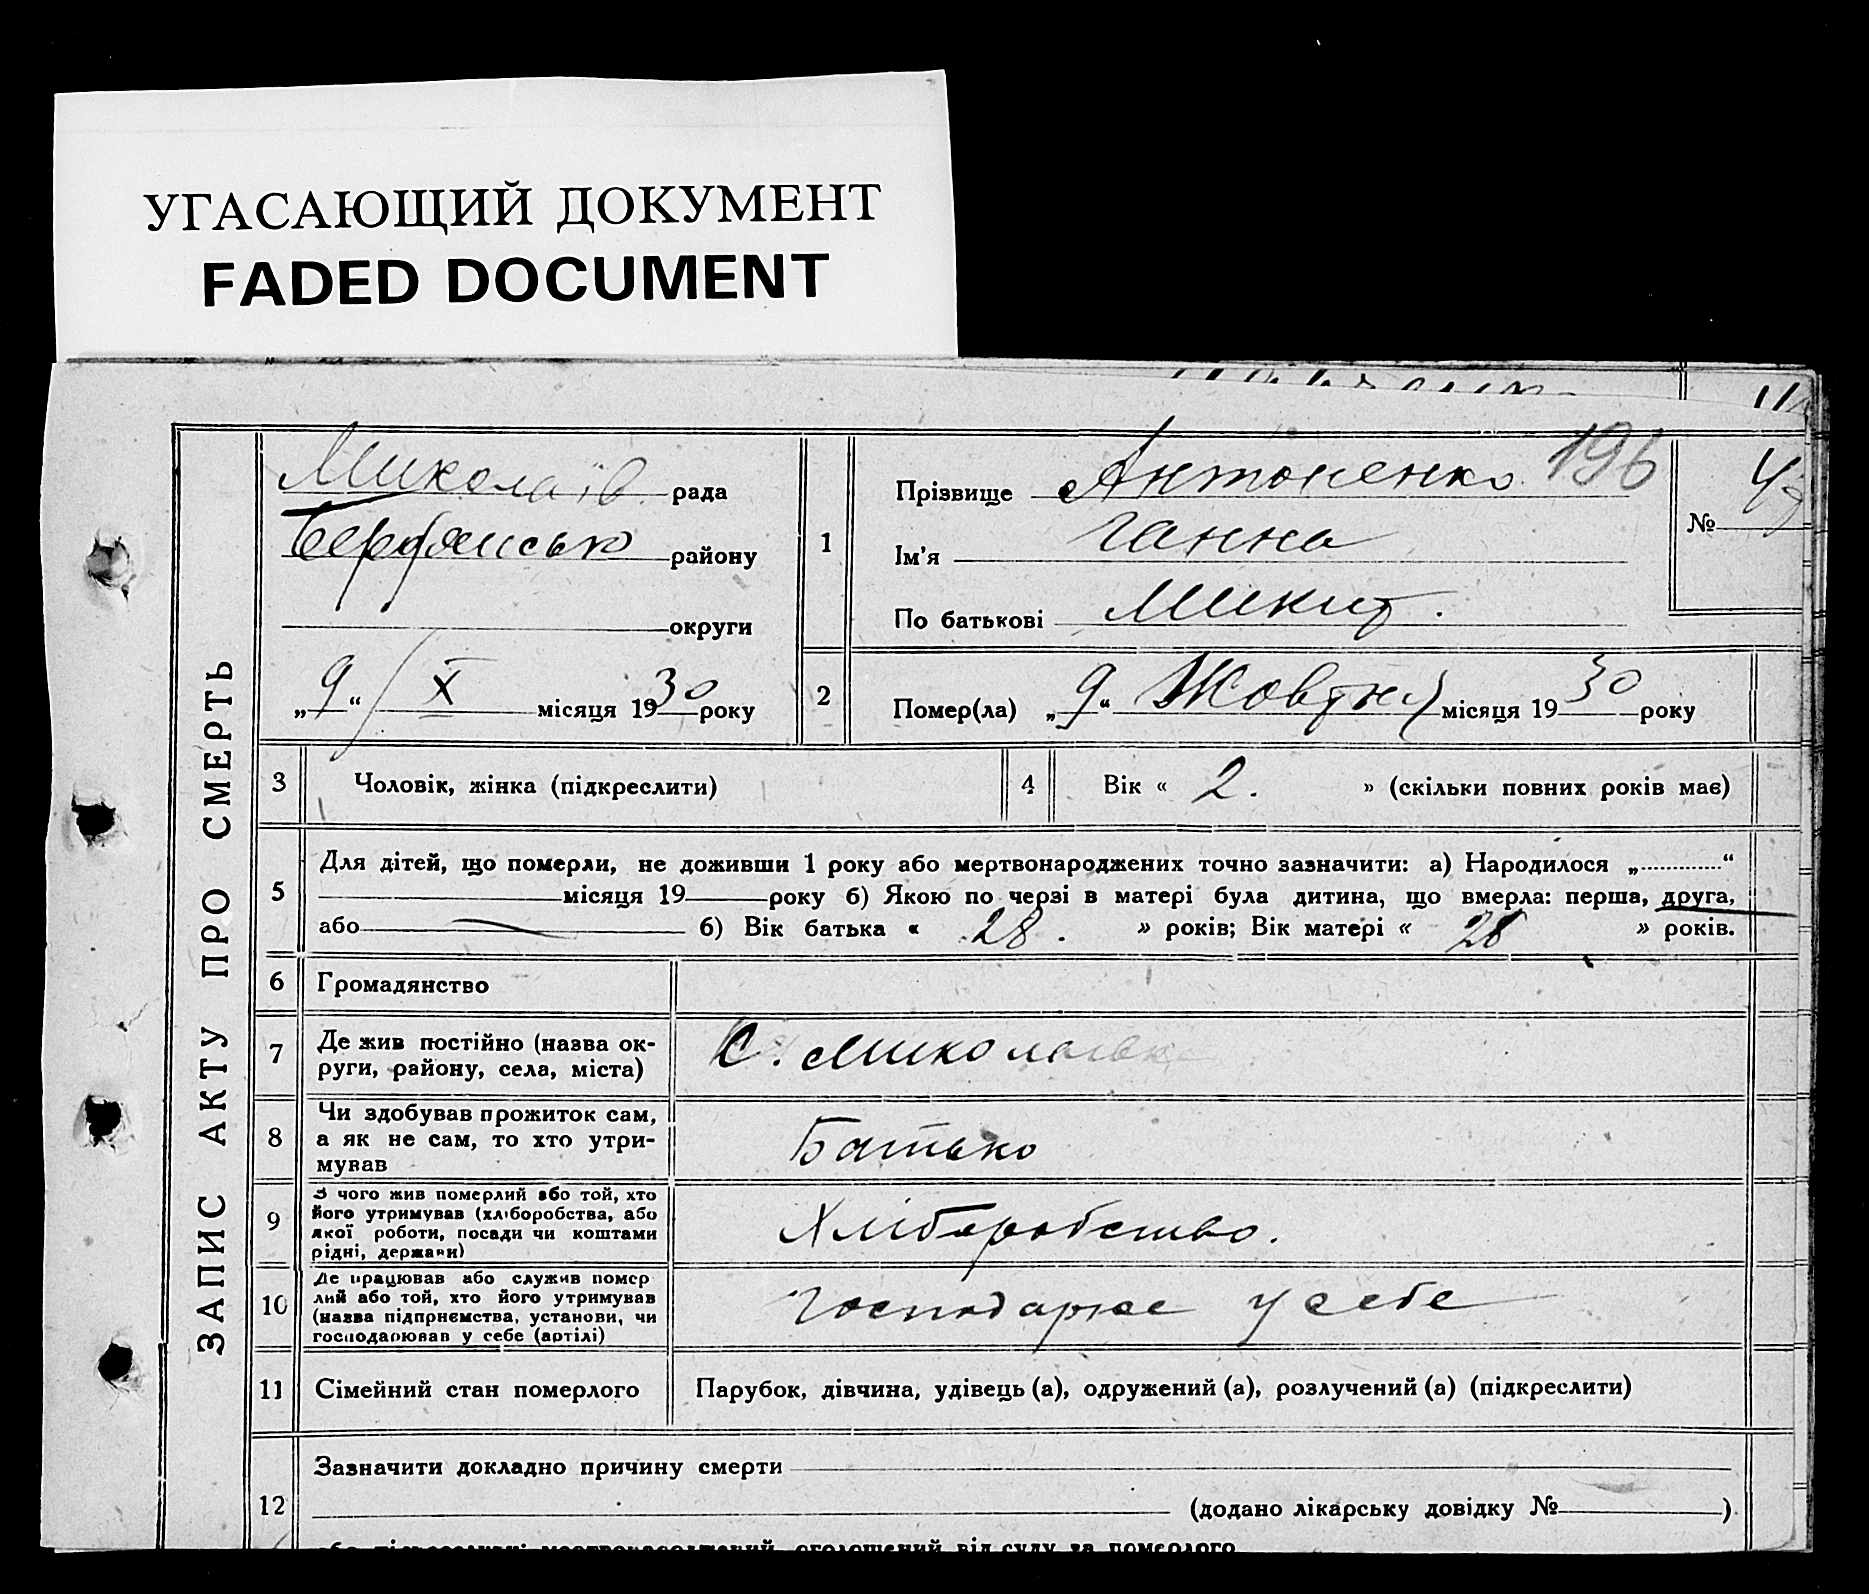 УГАСАЮЩИЙ ДОКУМЕНТ
FADED DOCUMENT
ЗАПИС АКТУ ПРО СМЕРТЬ
Миколаїв. рада
Бердянсько району
округи
„9“ X місяця 1930 року
1
Прізвище Антоненко 196
Ім'я Ганна
По батькові Микит.
№
2
Помер(ла) „9“ Жовтня місяця 1930 року
3 Чоловік, жінка (підкреслити)
4 Вік « 2. » (скільки повних років має)
5
Для дітей, що померли, не доживши 1 року або мертвонароджених точно зазначити: а) Народилося „ “
місяця 19 року б) Якою по черзі в матері була дитина, що вмерла: перша, друга,
або б) Вік батька « 28. » років; Вік матері « 28 » років.
6 Громадянство
7 Де жив постійно (назва ок-
руги, району, села, міста)
С. Миколаївка
8 Чи здобував прожиток сам,
а як не сам, то хто утри-
мував
Батько
9 З чого жив померлий або той, хто
його утримував (хліборобства, або
якої роботи, посади чи коштами
рідні, держави)
Хліборобство.
10 Де працював або служив помер
лий або той, хто його утримував
(назва підприємства, установи, чи
господарював у себе (артілі)
Господарює у себе
11 Сімейний стан померлого
Парубок, дівчина, удівець (а), одружений (а), розлучений (а) (підкреслити)
12
Зазначити докладно причину смерти
(додано лікарську довідку № )